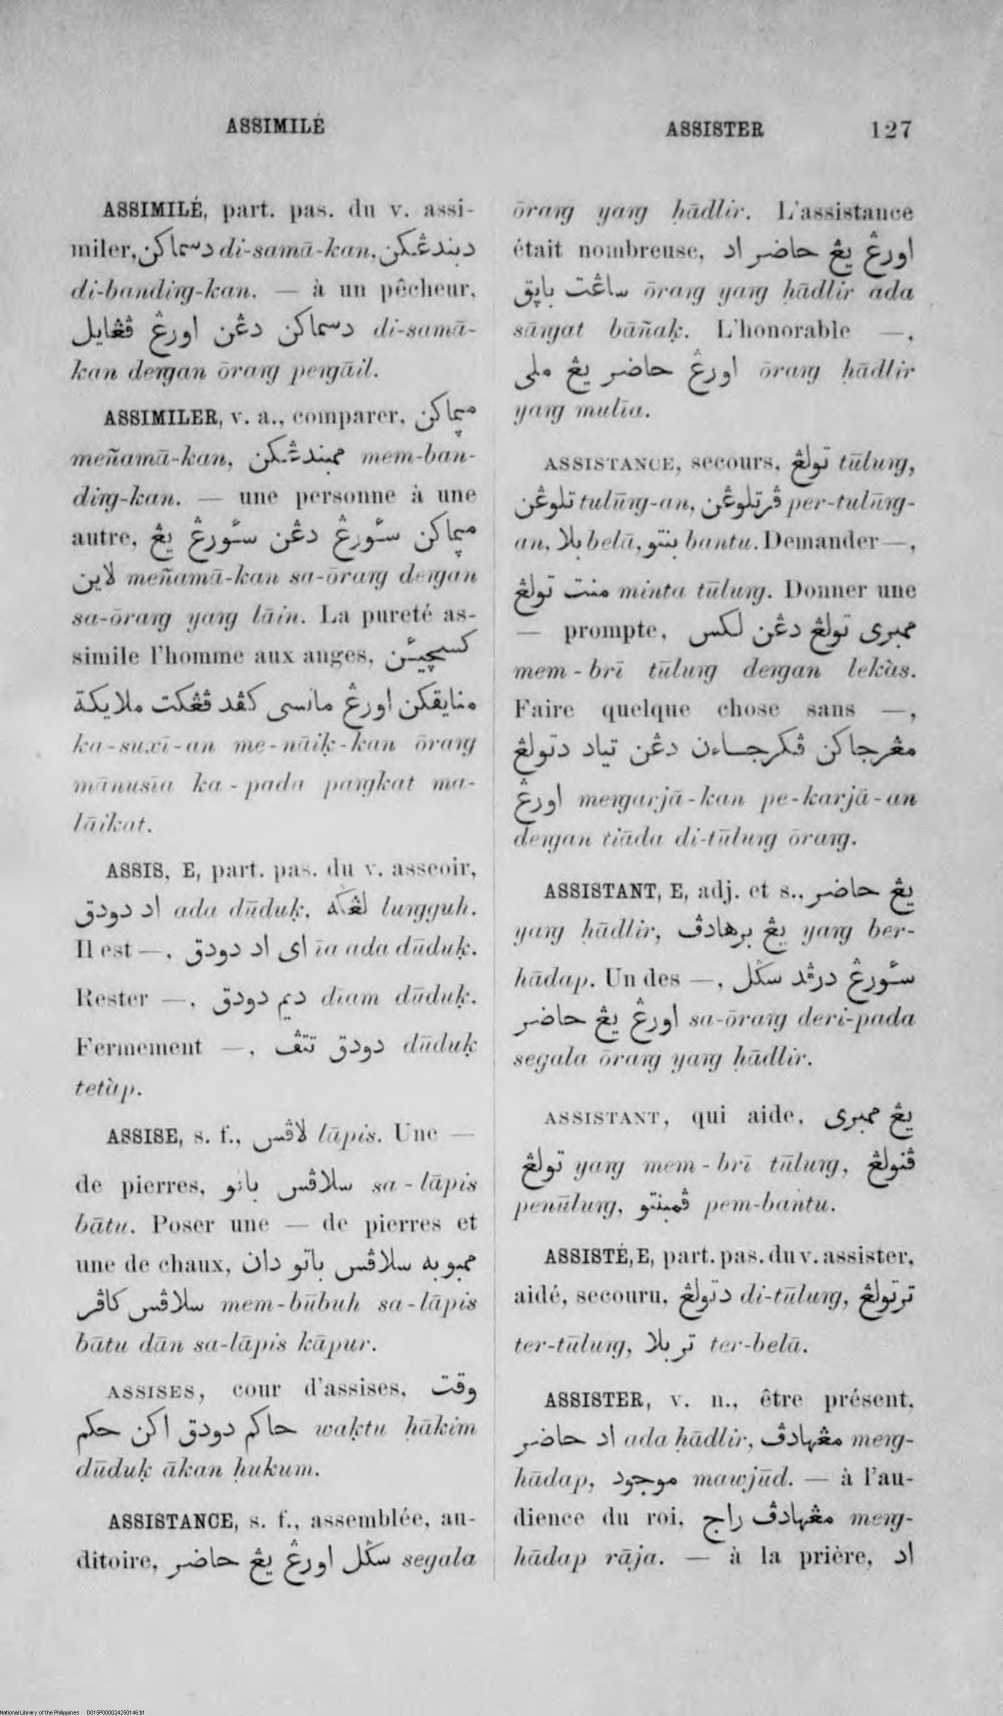 ASSIMILÉ
ASSISTER 127
ASSIMILÉ, part. pas. du v. assi-
miler, دسماكن di-samā-kan, دبندڠكن
di-bandiŋ-kan. — à un pêcheur,
دسماكن دڠن اورڠ ڤڠايل di-samā-
kan deŋan ōraŋ peŋāil.
ASSIMILER, v. a., comparer, مڽماكن
meñamā-kan, ممبندڠكن mem-ban-
diŋ-kan. — une personne à une
autre, مڽماكن سٔورڠ دڠن سٔورڠ يڠ
لاين meñamā-kan sa-ōraŋ deŋan
sa-ōraŋ yaŋ lāin. La pureté as-
simile l'homme aux anges, كسچئن
منايقكن اورڠ مانسي كڤد ڤڠكت ملايكة
ka-suxī-an me-nāiḳ-kan ōraŋ
mānusīa ka-pada paŋkat ma-
lāikat.
ASSIS, E, part. pas. du v. asseoir,
اد دودق ada dūduḳ, لڠݢه luŋguh.
Il est —, اي اد دودق īa ada dūduḳ.
Rester —, ديم دودق dīam dūduḳ.
Fermement —, دودق تتڤ dūduḳ
tetàp.
ASSISE, s. f., لاڤس lāpis. Une —
de pierres, سلاڤس باتو sa-lāpis
bātu. Poser une — de pierres et
une de chaux, ممبوبه سلاڤس باتو دان
سلاڤس كاڤر mem-būbuh sa-lāpis
bātu dān sa-lāpis kāpur.
ASSISES, cour d'assises, وقت
حاكم دودق اكن حكم waḳtu ḥākim
dūduḳ ākan ḥukum.
ASSISTANCE, s. f., assemblée, au-
ditoire, سݢل اورڠ يڠ حاضر segala
ōraŋ yaŋ ḥādlir. L'assistance
était nombreuse, اورڠ يڠ حاضر اد
ساڠت باڽق ōraŋ yaŋ ḥādlir ada
sāŋat bāñaḳ. L'honorable —,
اورڠ حاضر يڠ ملي ōraŋ ḥādlir
yaŋ mulīa.
ASSISTANCE, secours, تولڠ tūluŋ,
تلوڠن tulūŋ-an, ڤرتلوڠن per-tulūŋ-
an, بلا belā, بنتو bantu. Demander —,
منت تولڠ minta tūluŋ. Donner une
— prompte, ممبري تولڠ دڠن لكس
mem-brī tūluŋ deŋan lekàs.
Faire quelque chose sans —,
مڠرجاكن ڤكرجاءن دڠن تياد دتولڠ
اورڠ meŋarjā-kan pe-karjā-an
deŋan tiāda di-tūluŋ ōraŋ.
ASSISTANT, E, adj. et s., يڠ حاضر
yaŋ ḥādlir, يڠ برهادڤ yaŋ ber-
hādap. Un des —, سٔورڠ درڤد سݢل
اورڠ يڠ حاضر sa-ōraŋ deri-pada
segala ōraŋ yaŋ ḥādlir.
ASSISTANT, qui aide, يڠ ممبري
تولڠ yaŋ mem-brī tūluŋ, ڤنولڠ
penūluŋ, ڤمبنتو pem-bantu.
ASSISTÉ, E, part. pas. du v. assister,
aidé, secouru, دتولڠ di-tūluŋ, ترتولڠ
ter-tūluŋ, تربلا ter-belā.
ASSISTER, v. n., être présent,
اد حاضر ada ḥādlir, مڠهادڤ meŋ-
hādap, موجود mawjūd. — à l'au-
dience du roi, مڠهادڤ راج meŋ-
hādap rāja. — à la prière, اد
National Library of the Philippines